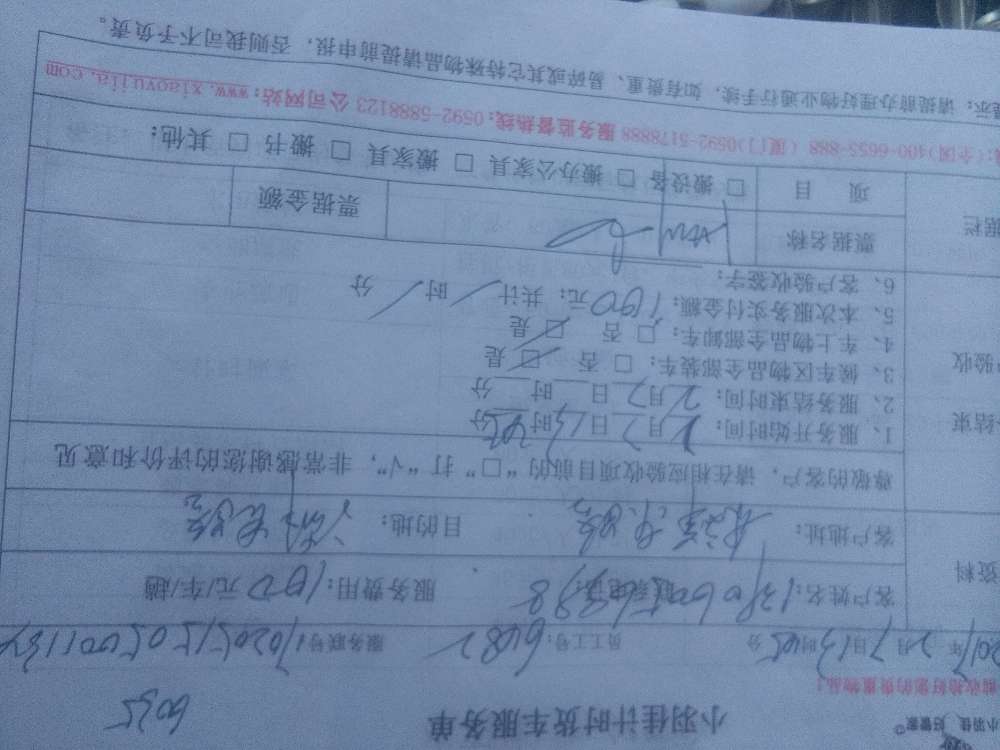 小羽佳计时货车服务单
6035
2017年2月7日13时45分 员工工号:6482 服务联号:
客户姓名: 服务费用:180元/车/趟
客户地址: 目的地:
尊敬的客户,请在相应验收项目前的“□”打“√”,非常感谢您的评价和意见
1、服务开始时间:2月7日13时45分
2、服务结束时间:2月7日 时 分
3、候车区物品全部装车:□ 否 □ 是
4、车上物品全部卸车:□ 否 □ 是
5、本次服务实付金额:180元;共计/时/分
6、客户验收签字:
票据名称 票据金额
项 目 □ 搬设备 □ 搬办公家具 □ 搬家具 □ 搬书 □ 其他:
(全国)400-6655-888 (厦门)0592-5178888 服务监督热线:0592-5888123 公司网站:www.xiaoyujia.com
提示:请提前办理好物业通行手续,如有贵重、易碎或其它特殊物品请提前申报,否则我司不予负责。